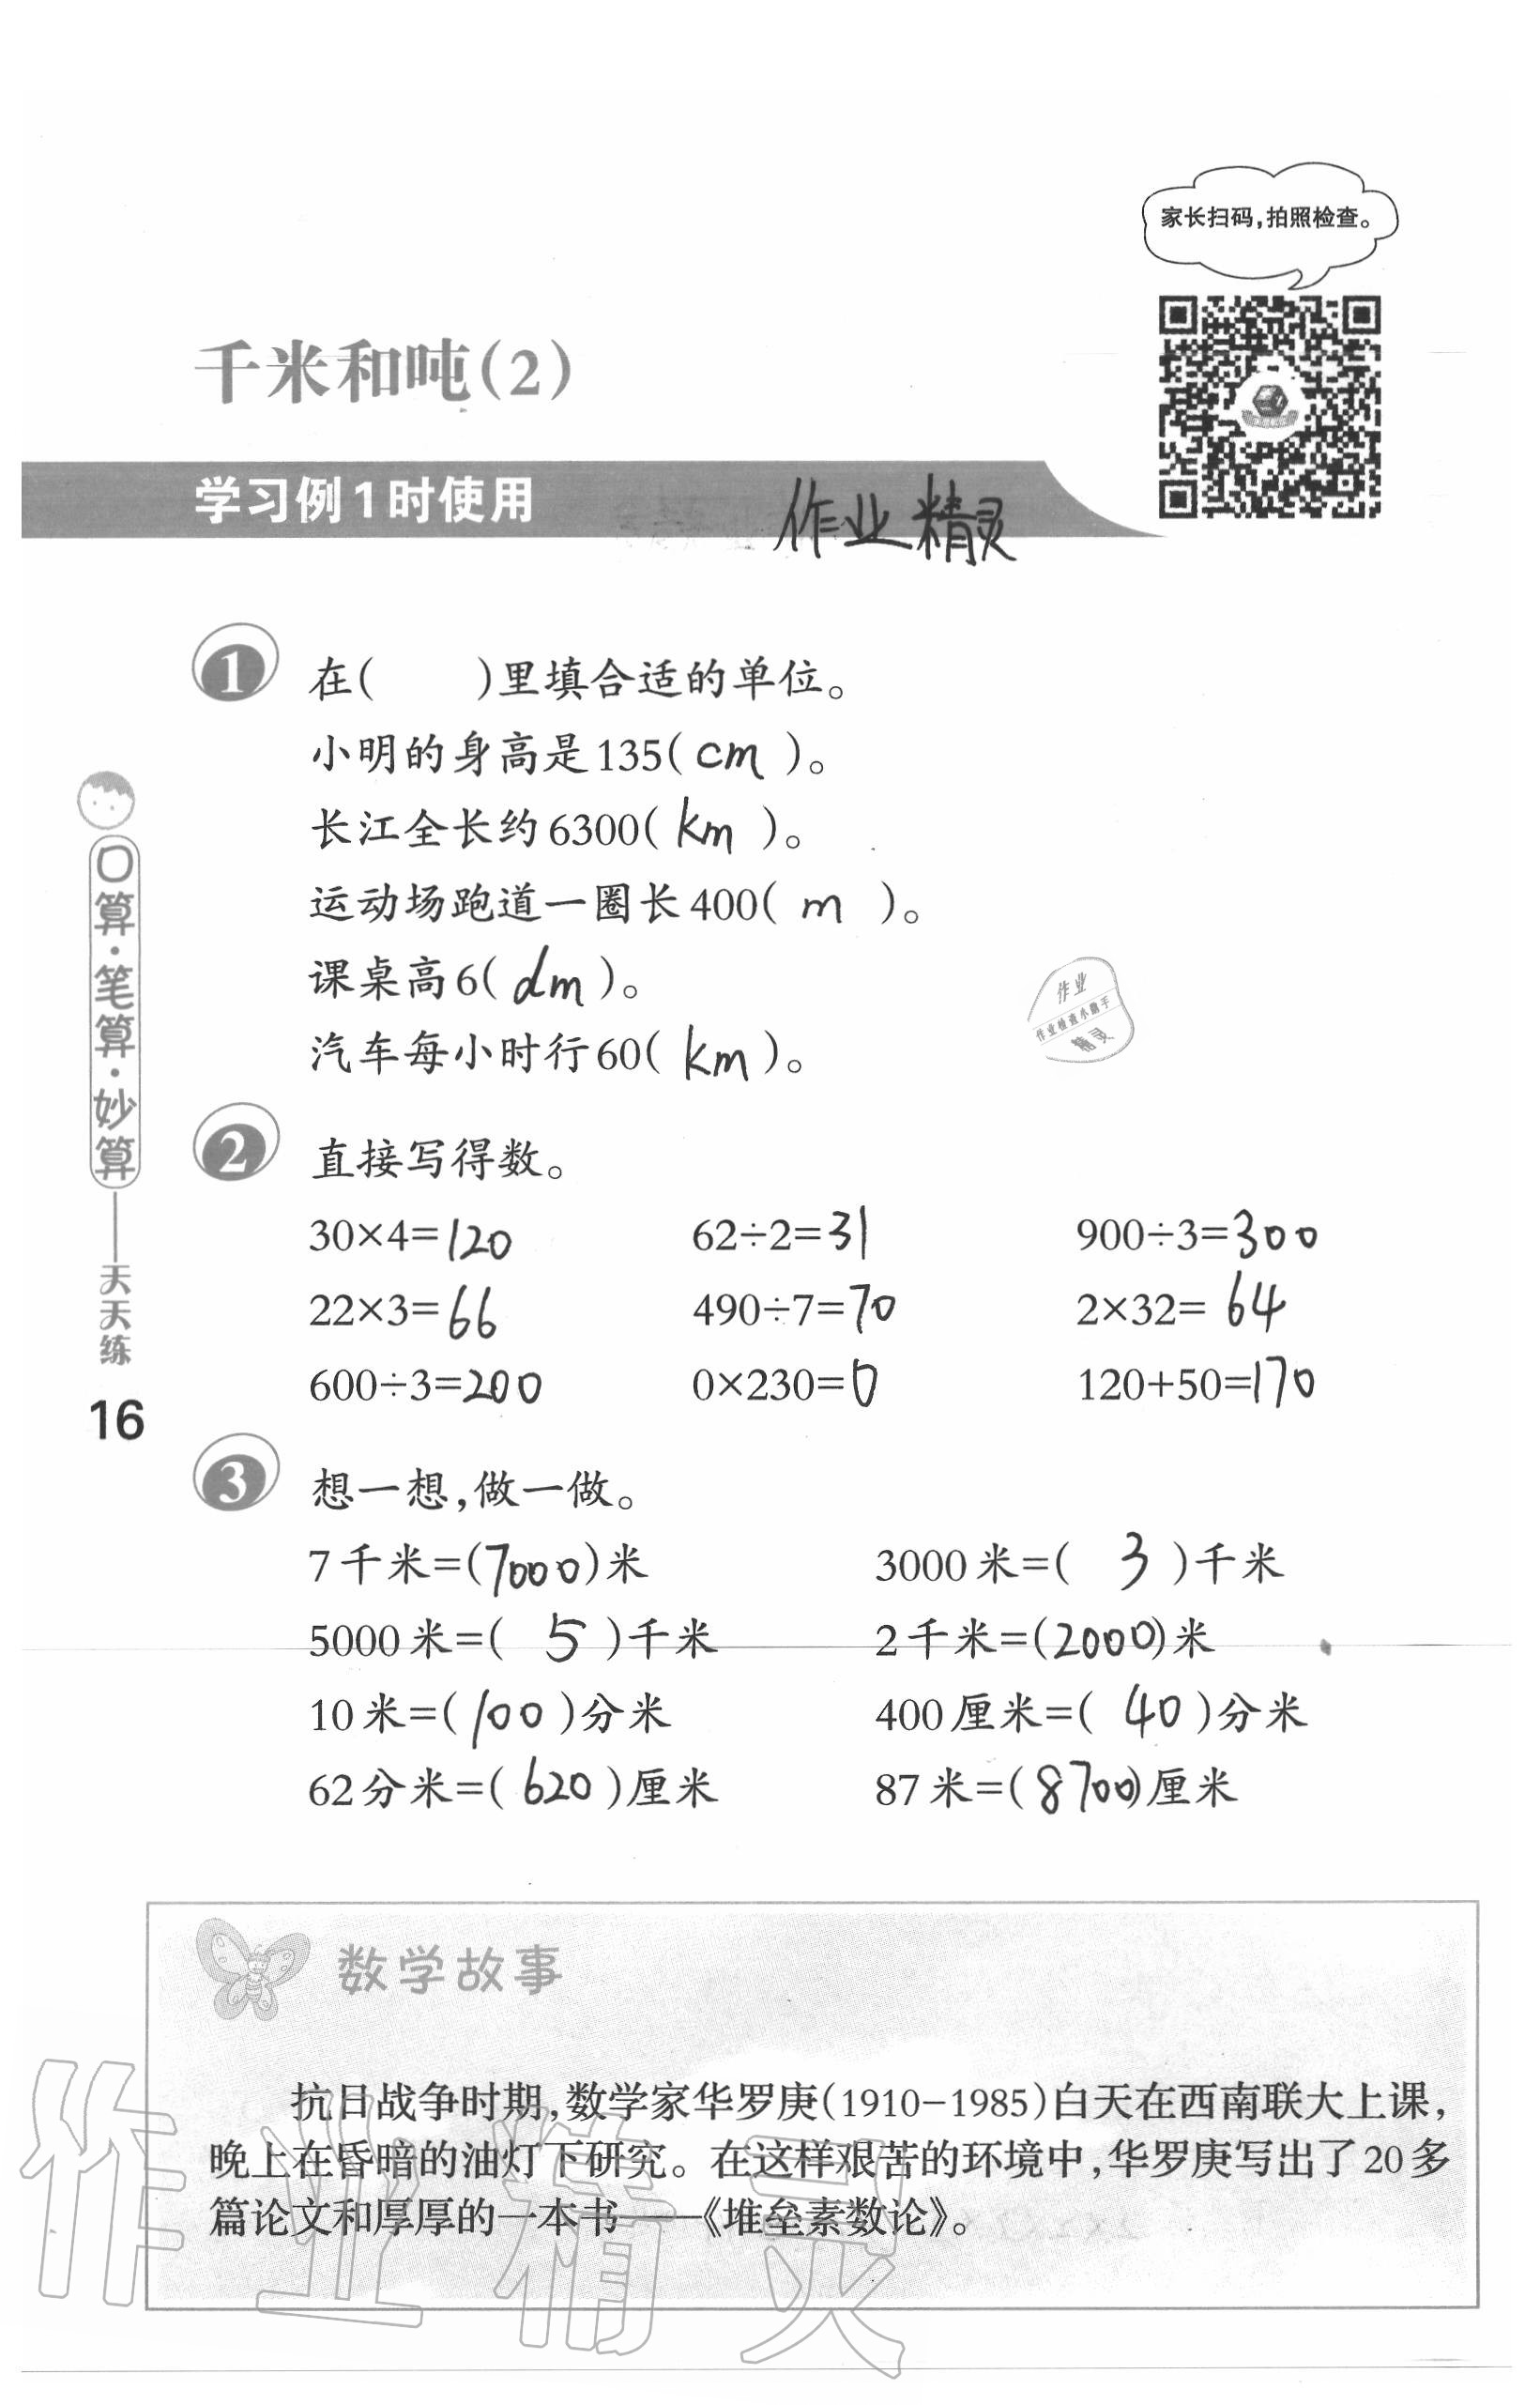 家长扫码,拍照检查。
千米和吨(2)
学习例1时使用
作业精灵
1 在(  )里填合适的单位。
小明的身高是135(cm)。
长江全长约6300(km)。
运动场跑道一圈长400(m)。
课桌高6(dm)。
汽车每小时行60(km)。
作业
作业检查小助手
精灵
2 直接写得数。
30×4=120 62÷2=31 900÷3=300
22×3=66 490÷7=70 2×32=64
600÷3=200 0×230=0 120+50=170
3 想一想,做一做。
7千米=(7000)米 3000米=(3)千米
5000米=(5)千米 2千米=(2000)米
10米=(100)分米 400厘米=(40)分米
62分米=(620)厘米 87米=(8700)厘米
口算·笔算·妙算——天天练
16
数学故事
抗日战争时期,数学家华罗庚(1910-1985)白天在西南联大上课,
晚上在昏暗的油灯下研究。在这样艰苦的环境中,华罗庚写出了20多
篇论文和厚厚的一本书——《堆垒素数论》。
作业精灵